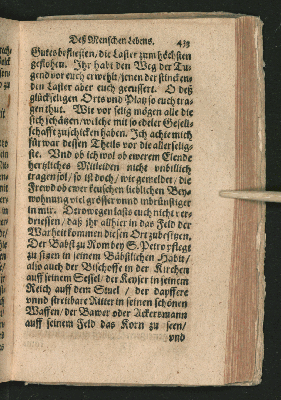 Deß Menschen Lebens. 433
Gutes befliessen, die Laster zum höchsten
geflohen. Ihr habt den Weg der Tu-
gend vor euch erwehlt/ jenen der stincken-
den Laster aber euch geeussert. O deß
glückseligen Orts und Platz so euch tra-
gen thut. Wie vor selig mögen alle die
sich schätzen/ welche mit so edeler Gesell-
schafft zu schicken haben. Ich achte mich
für war dessen Theils vor die allerselig-
ste. Vnd ob ich wol ob ewerem Elende
hertzliches Mitleiden nicht unbillich
tragen sol/ so ist doch/ wie gemelder/ die
Frewd ob ewer keuschen lieblichen Bey-
wohnung viel grösser vnnd inbrünstiger
in mir. Derowegen lasts euch nicht ver-
driessen/ daß ihr allhier in das Feld der
Warheit kommen diesen Ort zubesitzen.
Der Babst zu Rom bey S. Petro pflegt
zu sitzen in seinem Bäbstlichen Habit/
also auch der Bischoffe in der Kirchen
auff seinem Sessel/ der Keyser in seinem
Reich auff dem Stuel/ der dapffere
vnnd streitbare Ritter in seinen schönen
Waffen/ der Bawer oder Ackersmann
auff seinem Feld das Korn zu seen/
vnd